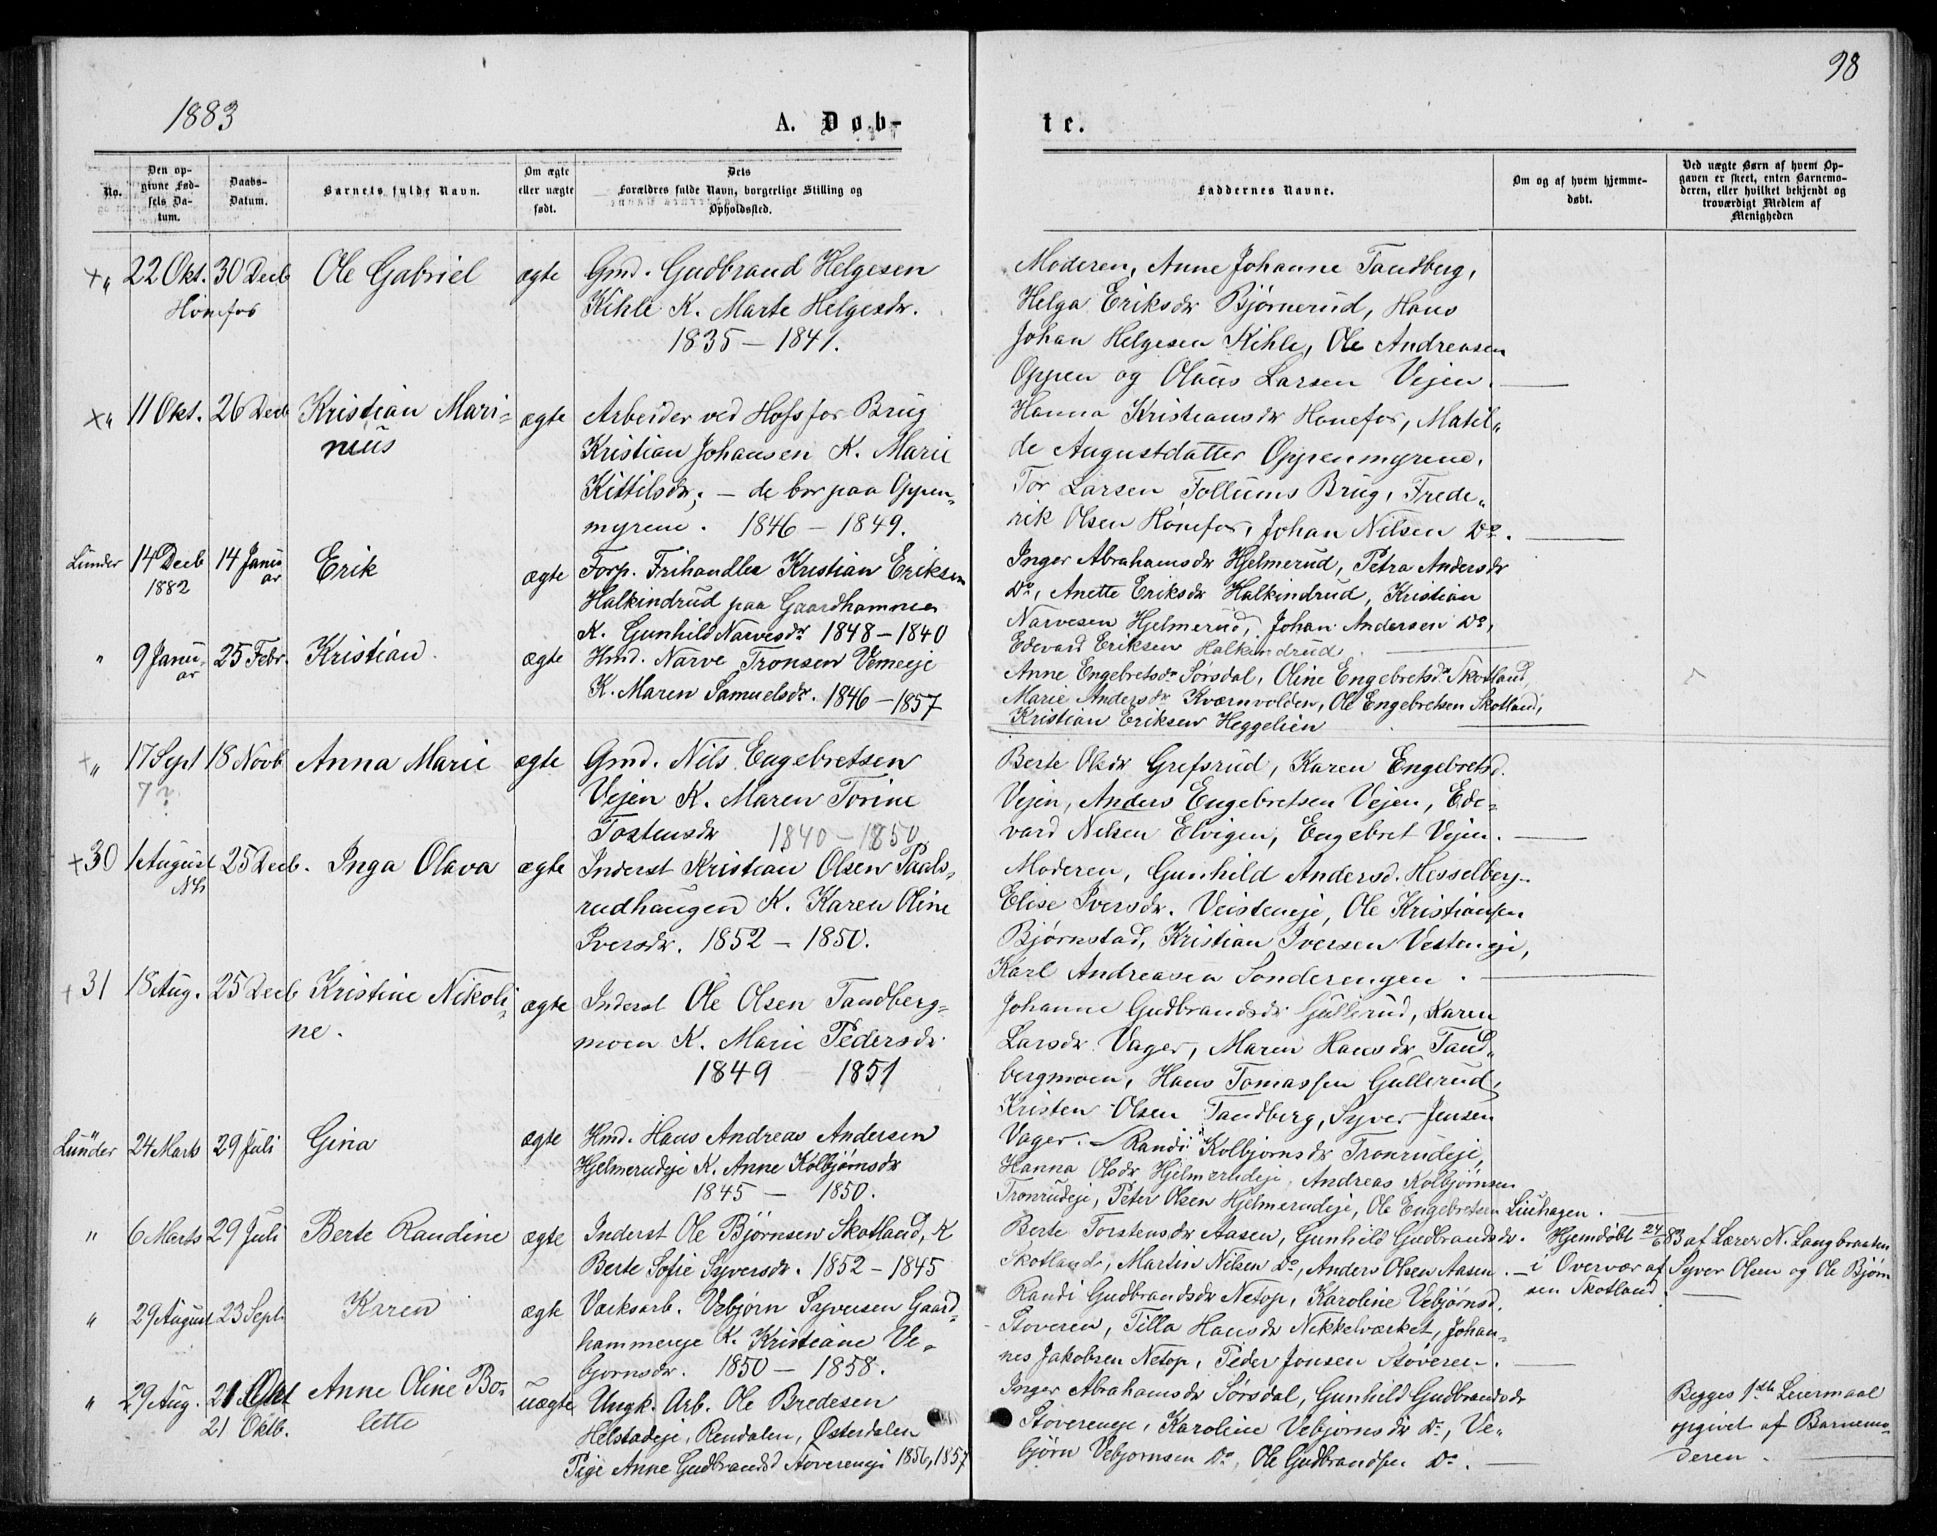 1883
98
A. Døb-
te.
No.
Den op-
givne Fød-
sels Da-
tum.
Daabs-
Datum.
Barnets fulde Navn.
Om ægte
eller uægte
født.
Dets
Forældres fulde Navn, borgerlige Stilling og
Opholdssted.
Faddernes Navne.
Om og af hvem hjemme-
døbt.
Ved uægte Børn af hvem Op-
gaven er skeet, enten Barnemo-
deren, eller hvilket bekjendt og
troværdigt Medlem af
Menigheden
+ " 22 Okt. 30 Decb Ole Gabriel ægte Gmd. Gudbrand Helgesen
Hønefos
Kihle K. Marte Helgesdr.
1835 - 1841.
Moderen, Anne Johanne Tandberg,
Helga Eriksdr Bjørnerud, Hans
Johan Helgesen Kihle, Ole Andreasen
Oppen og Olaus Larsen Vejen.
+ " 11 Okt. 26 Decb Kristian Mari-
nius
ægte Arbeider ved Hofsfos Brug
Kristian Johansen K. Marie
Kittilsdr, - de bor paa Oppen-
myrene. 1846 - 1849.
Hanna Kristiansdr Hønefos, Matil-
de Augustdatter Oppenmyrene,
Tor Larsen Follums Brug, Frede-
rik Olsen Hønefos, Johan Nilsen Do.
Lunder 14 Decb 14 Janu
1882 ar
Erik ægte Forp. Frihandler Kristian Eriksen
Halkindrud paa Gaardhammer
K. Gunhild Narvesdr 1848 - 1840
Inger Abrahamsdr Hjelmerud, Petra Andersdr
Do, Anette Eriksdr Halkindrud, Kristian
Narvesen Hjelmerud, Johan Andersen Do,
Edevard Eriksen Halkindrud.
" 9 Janu- 25 Febr. Kristian. ægte Hmd. Narve Tronsen Vemeeje
ar
K. Maren Samuelsdr. 1846 - 1857
Anne Engebretsdr Sørsdal, Oline Engebretsdr Skotland,
Marie Andersdr Kværnvolden, Ole Engebretsen Skotland,
Kristian Eriksen Heggelien
+ " 17 Sept 18 Novb Anna Marie ægte Gmd. Nils Engebretsen
7?
Vejen K. Maren Torine
Tostensdr 1840 - 1850
Berte Olsdr Grefsrud, Karen Engebretsd.
Vejen, Anders Engebretsen Vejen, Ede-
vard Nelsen Elvigen, Engebret Vejen.
+ 30 1 August 25 Decb. Inga Olava ægte Inderst Kristian Olsen Paals-
rudhaugen K. Karen Oline
Iversdr. 1852 - 1850.
Moderen, Gunhild Andersd. Hesselberg
Elise Iversdr. Veisteneje, Ole Kristiansen
Bjørnstad, Kristian Iversen Vesteneje,
Karl Andreasen Sonderengen.
+ 31 18 Aug. 25 Decb Kristine Nikoli-
ne.
ægte Inderst Ole Olsen Tandberg-
moen K. Marie Pedersdr
1849 - 1851
Johanne Gudbrandsdr Gullerud, Karen
Larsdr Vager, Maren Hansdr Tand-
bergmoen, Hans Tomassen Gullerud,
Kristen Olsen Tandberg, Syver Jensen
Vager.
Lunder 24 Marts 29 Juli Gina ægte Hmd. Hans Andreas Andersen
Hjelmerudeje K. Anne Kolbjørnsdr
1845 - 1850.
Randi Kolbjørnsdr Tronrudeje,
Hanna Olsdr Hjelmerudeje, Andreas Kolbjørnsen
Tronrudeje, Peter Olsen Hjelmerudeje, Ole Engebretsen Liuhagen.
" 6 Marts 29 Juli Berte Randine ægte Inderst Ole Bjørnsen Skotland, K
Berte Sofie Syversdr. 1852 - 1845
Berte Torstensdr Aasen, Gunhild Gudbrandsdr.
Skotland, Martin Nilsen Do, Anders Olsen Aasen.
Hjemdøbt 24/6 83 af Lærer N. Langbraaten
i Overvær af Syver Olsen og Ole Bjørn
sen Skotland.
" 29 August 23 Sept. Karen ægte Værksarb. Vebjørn Syversen Gaard-
hammereje K. Kristiane Ve-
bjørnsdr. 1850 - 1858.
Randi Gudbrandsdr Netop, Karoline Vebjørnsd.
Støveren, Tilla Hansdr Nikkelværket, Johan-
nes Jakobsen Netop, Peder Jonsen Støveren.
" 29 Aug. 21 Okt Anne Oline Bo-
21 Oktb. lette
uægte Ungk. Arb. Ole Bredesen
Helstadeje, Rendalen, Østerdalen
Pige Anne Gudbrandsd Støvereneje 1856, 1857
Inger Abrahamsdr Sørsdal, Gunhild Gudbrandsdr
Støvereneje, Karoline Vebjørnsdr Do, Ve-
bjørn Vebjornsen Do, Ole Gudbrandsen Do.
Begges 1ste Leiermaal
opgivet af Barnemo-
deren.